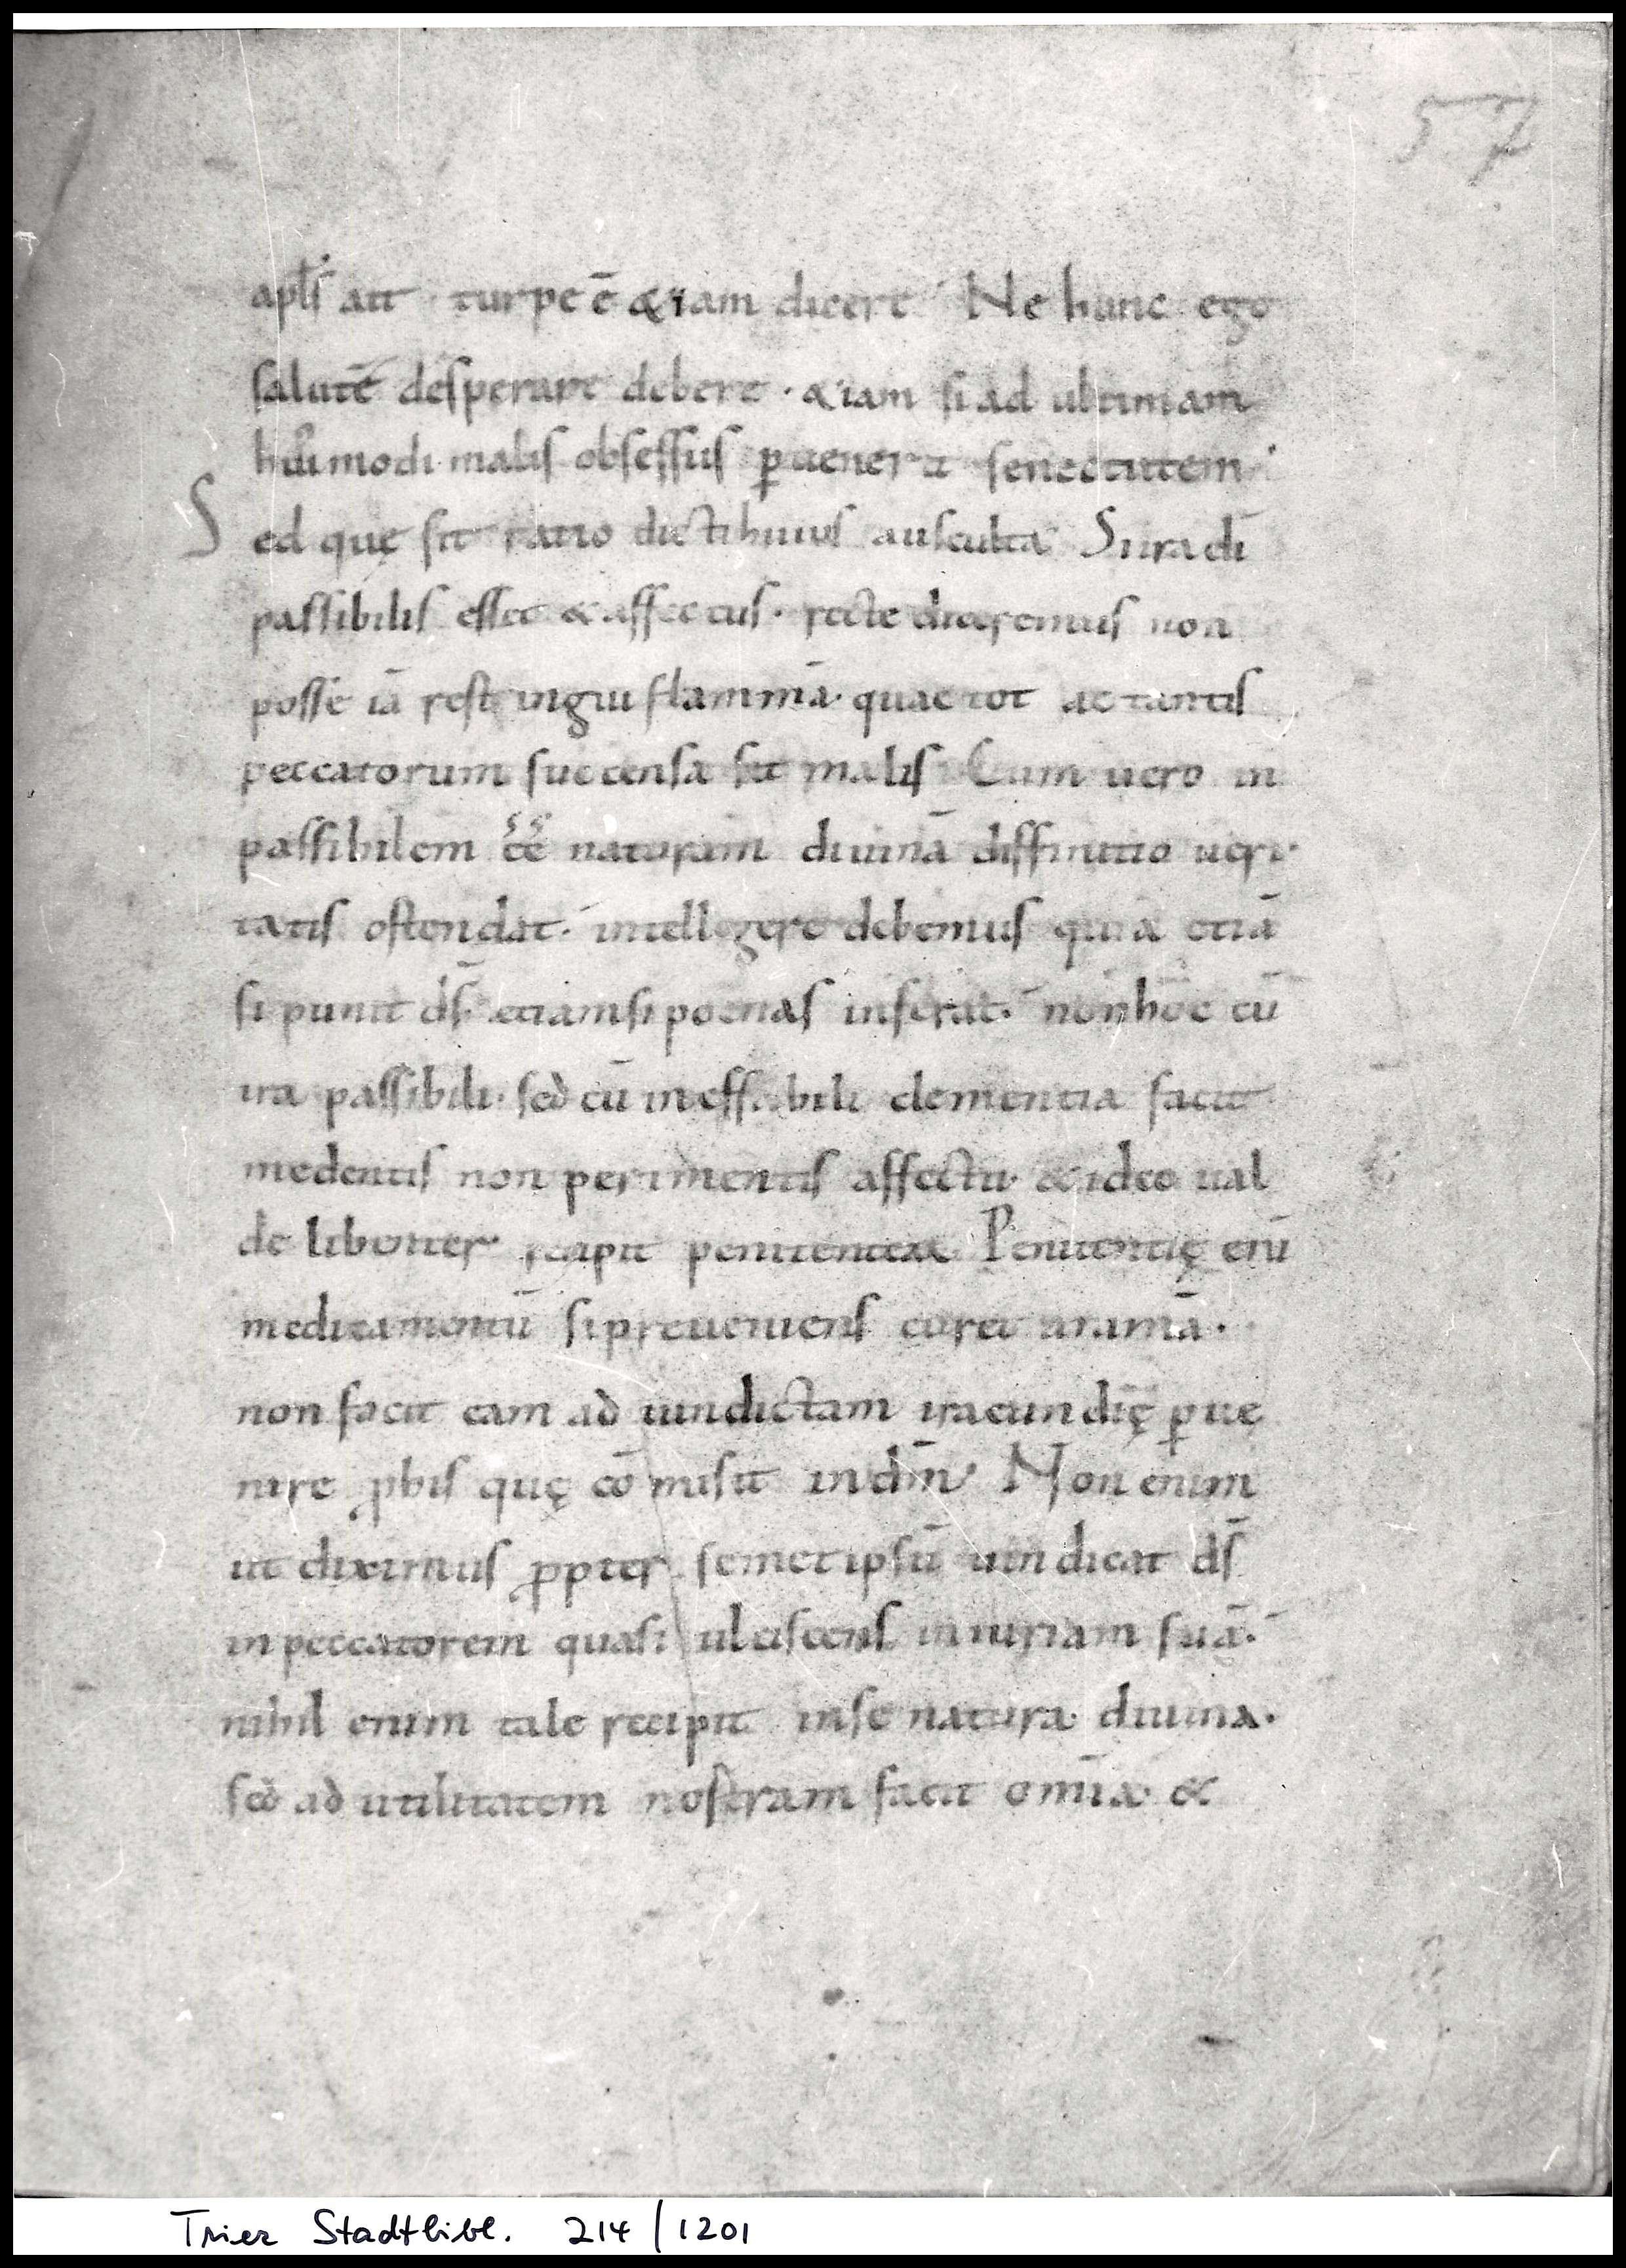 57
apls̄ ait turpe ē &iam dicere Ne hunc ego
salutē desperare debere · &iam si ad ultimam
hui᷒modi malis obsessus ꝑuenerit senectutem
Sed quę sit ratio dicti huius ausculta Si ira dī
passibilis esset & affectus · recte diceremus non
posse iā restingui flammā · quae tot ac tantis
peccatorum succensa sit malis Cum uero in
passibilem ēē naturam diuinā diffinitio ueri
tatis ostendat · intellegere debemus quia etiā
si punit ds̄ etiamsi poenas inferat · non hoc cū
ira passibili · sed cū ineffabili clementia facit
medentis non perimentis affectu · & ideo ual
de libenter recipit penitentes Penitentię enī
medicamentū si preueniens curet animā ·
non facit eam ad uindictam iracundię ꝑue
nire ꝓ his quę cōmisit in dm̄ Non enim
ut diximus ꝓpter semet ipsū uindicat ds̄
in peccatorem quasi ulciscens iniuriam suā ·
nihil enim tale recipit in se natura diuina ·
sed ad utilitatem nostram facit omīa &
Trier Stadtbibl. 214/1201